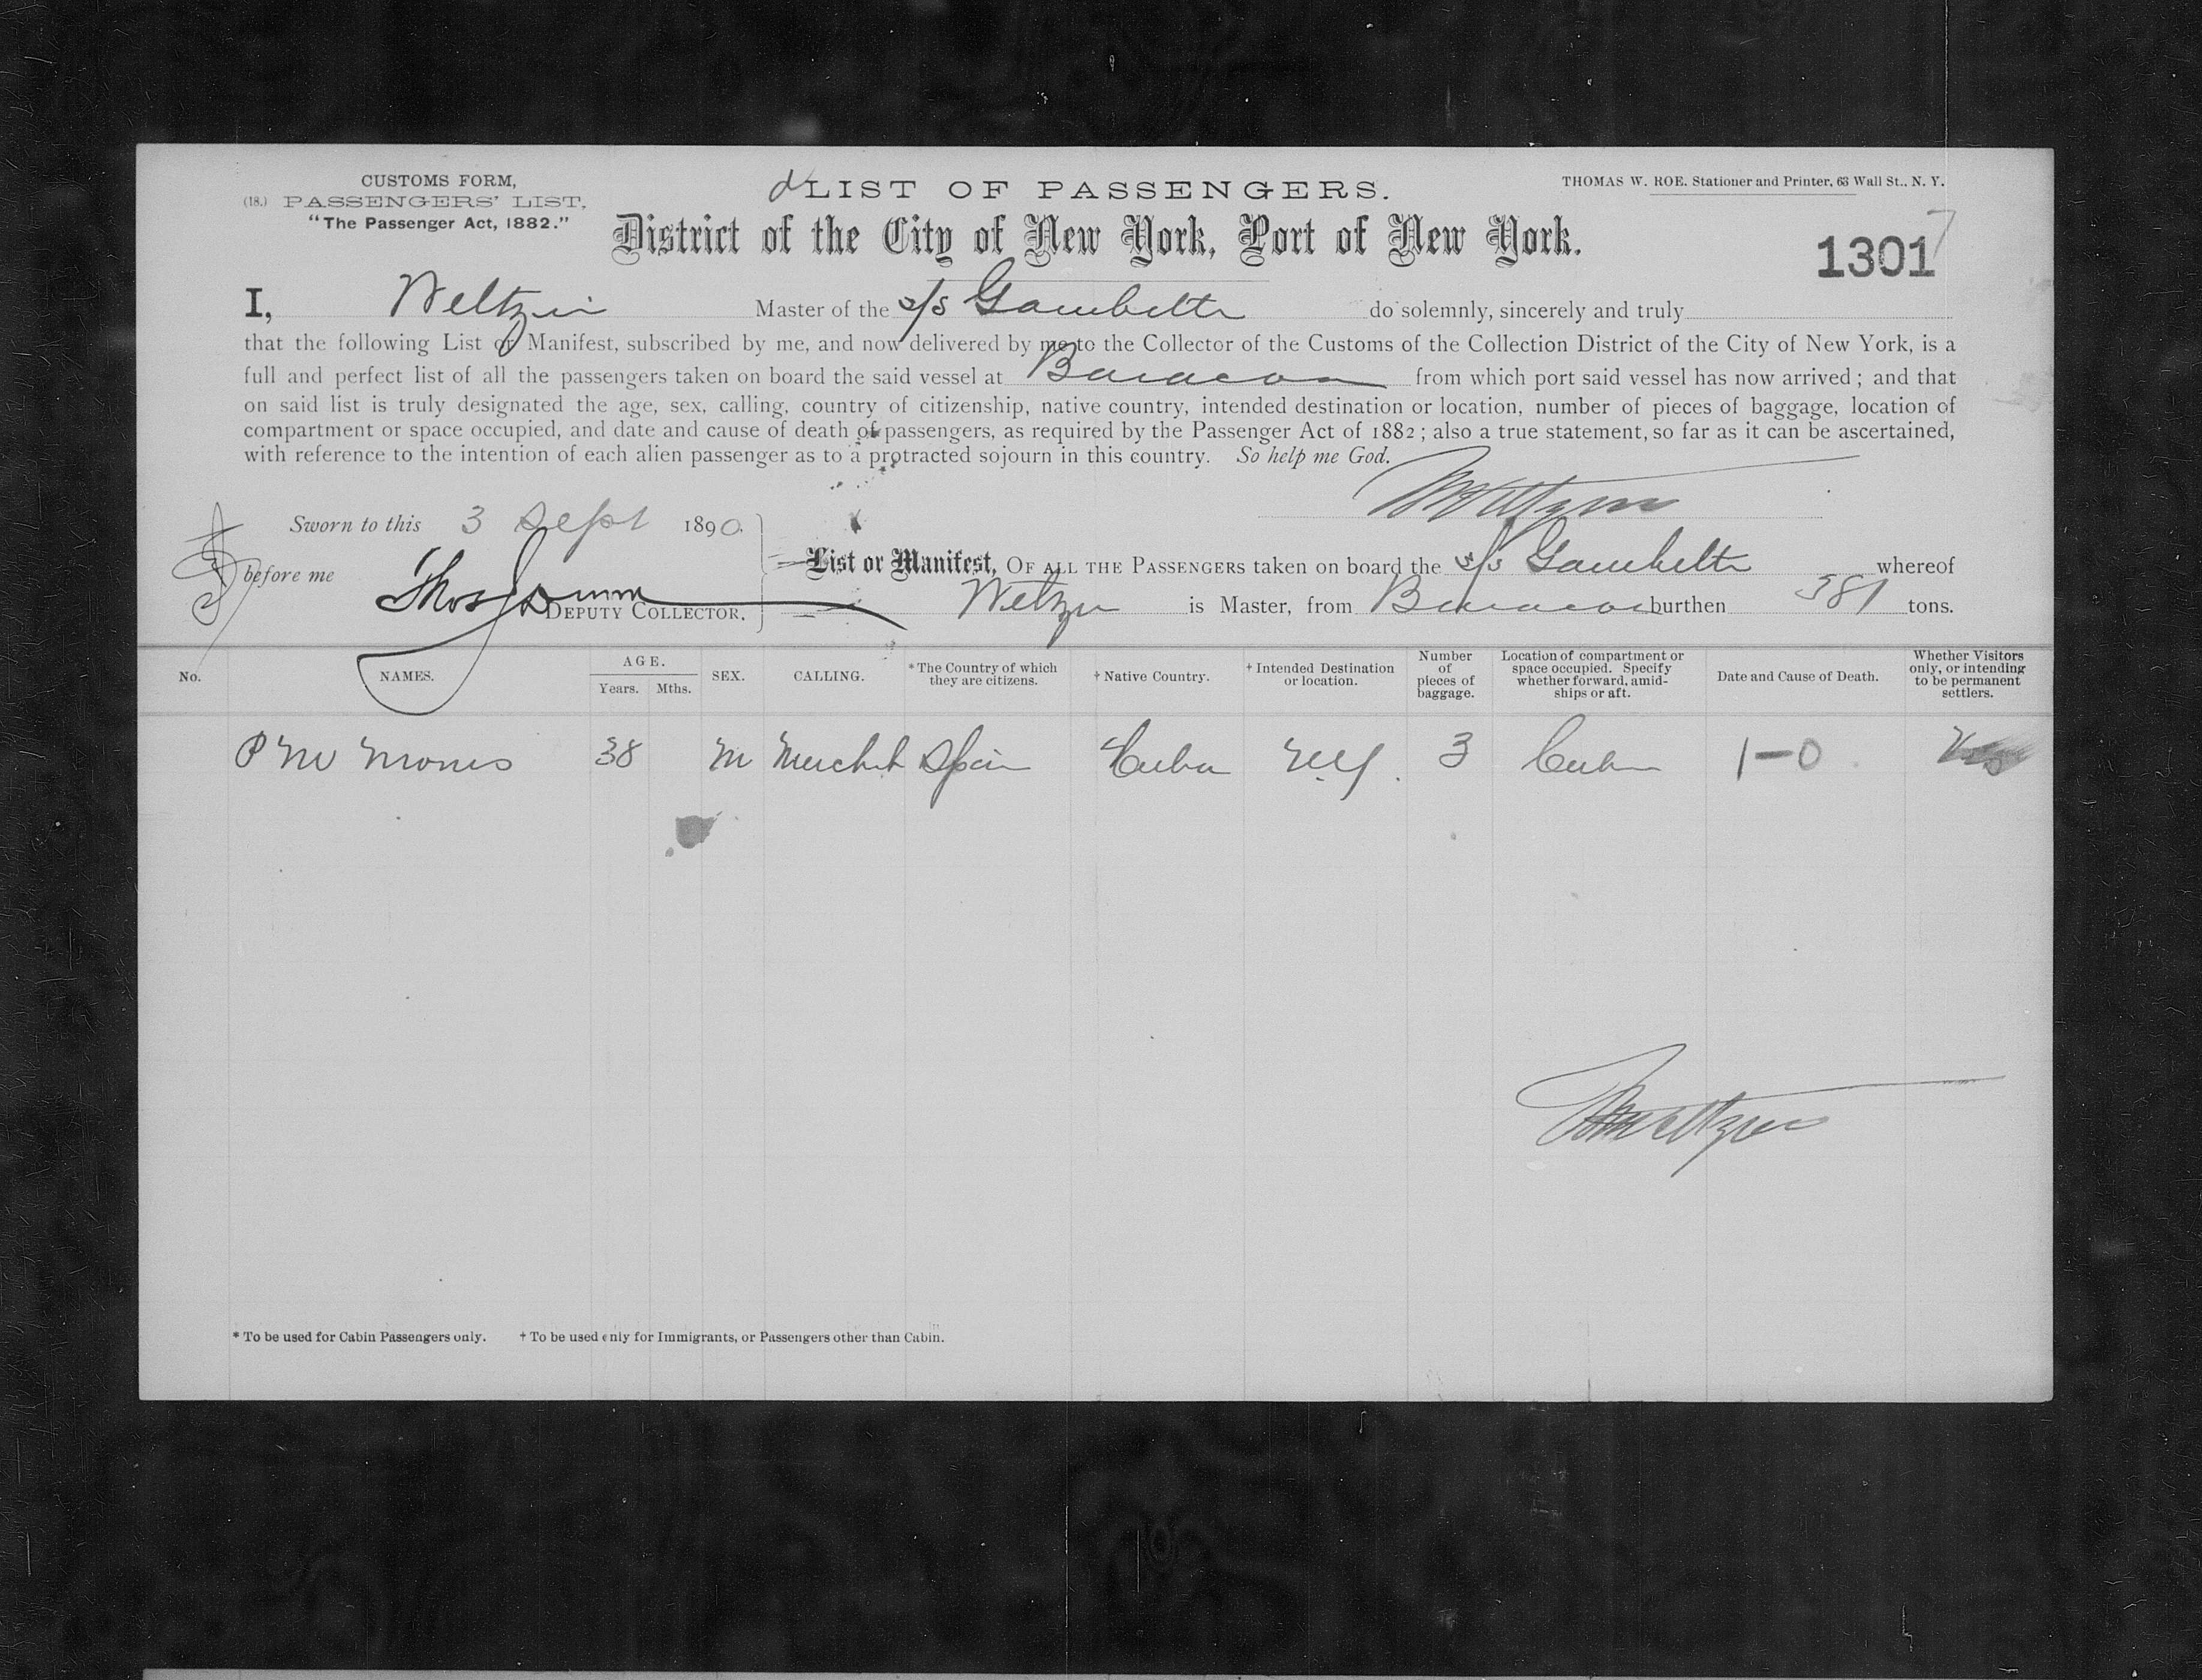 CUSTOMS FORM,
(18.) PASSENGERS' LIST,
"The Passenger Act, 1882."
LIST OF PASSENGERS.
THOMAS W. ROE. Stationer and Printer, 63 Wall St., N. Y.
District of the City of New York, Port of New York.
1301
I, Weltzin Master of the s/s Gambetta do solemnly, sincerely and truly
that the following List or Manifest, subscribed by me, and now delivered by me to the Collector of the Customs of the Collection District of the City of New York, is a
full and perfect list of all the passengers taken on board the said vessel at Baracoa from which port said vessel has now arrived; and that
on said list is truly designated the age, sex, calling, country of citizenship, native country, intended destination or location, number of pieces of baggage, location of
compartment or space occupied, and date and cause of death of passengers, as required by the Passenger Act of 1882; also a true statement, so far as it can be ascertained,
with reference to the intention of each alien passenger as to a protracted sojourn in this country. So help me God.
Weltzin
Sworn to this 3 Sept 1890.
before me Thos
DEPUTY COLLECTOR.
List or Manifest, OF ALL THE PASSENGERS taken on board the s/s Gambetta whereof
Weltzin is Master, from Baracoa burthen 381 tons.
No. NAMES. AGE. Years. Mths. SEX. CALLING. *The Country of which they are citizens. † Native Country. † Intended Destination or location. Number of pieces of baggage. Location of compartment or space occupied. Specify whether forward, amidships or aft. Date and Cause of Death. Whether Visitors only, or intending to be permanent settlers.
P M Mones 38 M Mercht Spain Cuba N.Y. 3 Cabin 1-0
Weltzin
* To be used for Cabin Passengers only. † To be used only for Immigrants, or Passengers other than Cabin.